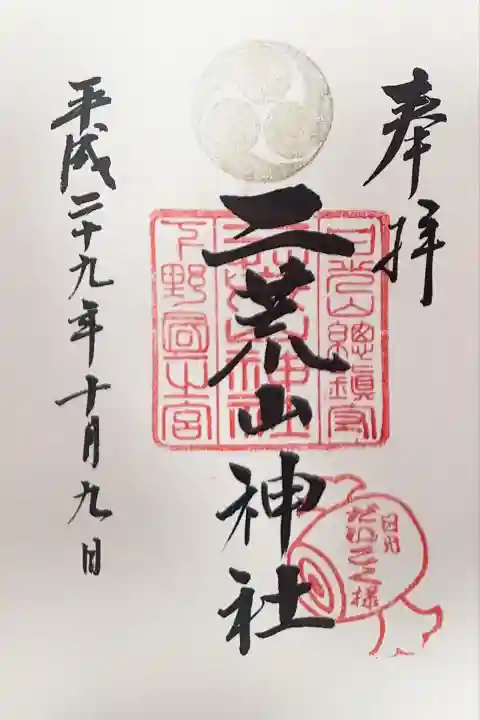 奉拝
日光山總鎮守
二荒山神社
二荒山神社
下野國一宮
日光
だいこく様
平成二十九年十月九日